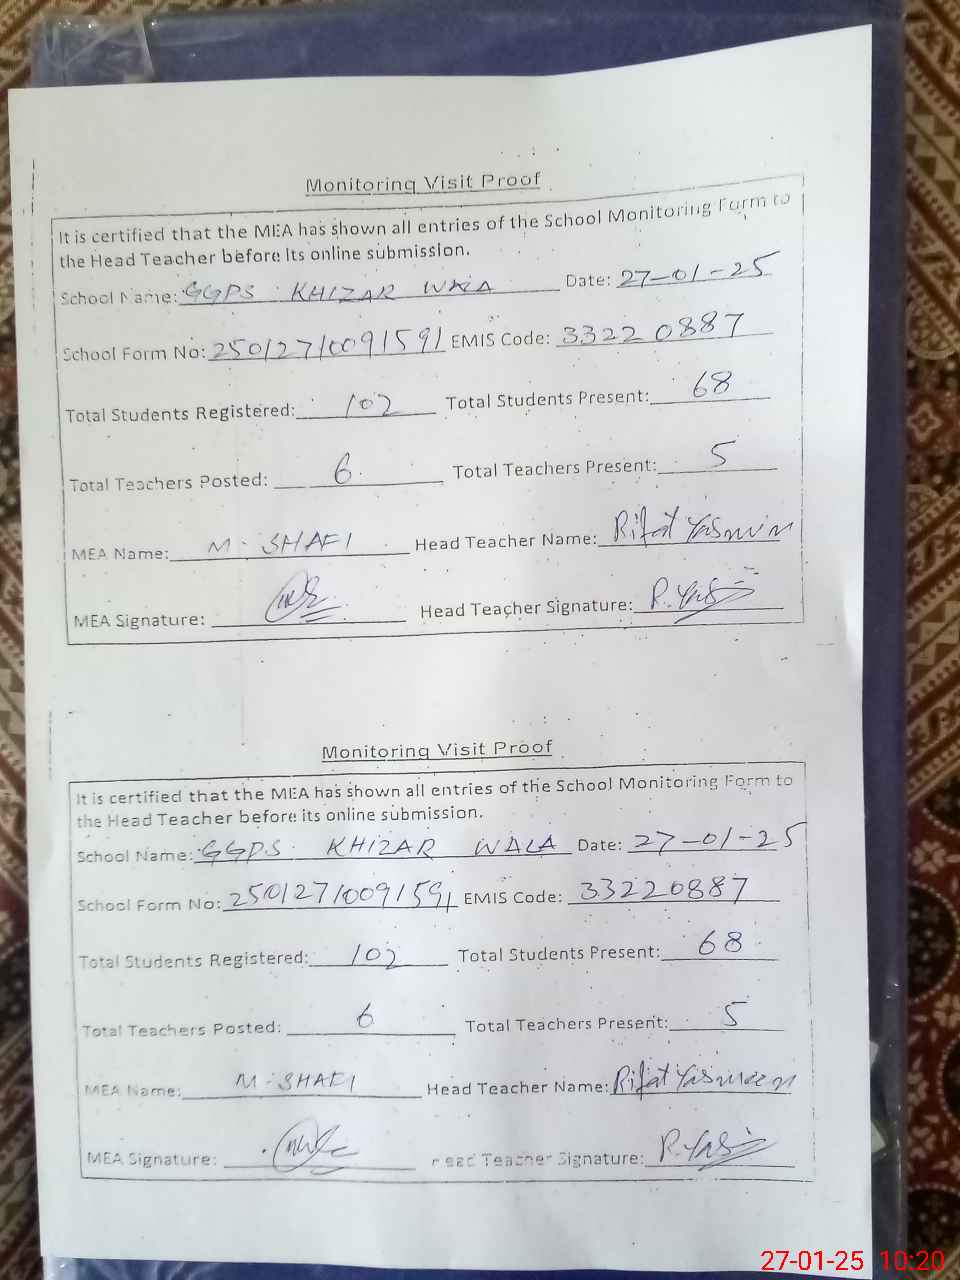 Monitoring Visit Proof
It is certified that the MEA has shown all entries of the School Monitoring Form to
the Head Teacher before its online submission.
School Name: GGPS KHIZAR WALA Date: 27-01-25
School Form No: 25012710091591 EMIS Code: 33220887
Total Students Registered: 102 Total Students Present: 68
Total Teachers Posted: 6 Total Teachers Present: 5
MEA Name: M. SHAFI Head Teacher Name: Rifat Yasmin
MEA Signature: Head Teacher Signature: R. Yas
Monitoring Visit Proof
It is certified that the MEA has shown all entries of the School Monitoring Form to
the Head Teacher before its online submission.
School Name: GGPS KHIZAR WALA Date: 27-01-25
School Form No: 25012710091591 EMIS Code: 33220887
Total Students Registered: 102 Total Students Present: 68
Total Teachers Posted: 6 Total Teachers Present: 5
MEA Name: M. SHAFI Head Teacher Name: Rifat Yasmeen
MEA Signature: Head Teacher Signature: R. Yas
27-01-25 10:20